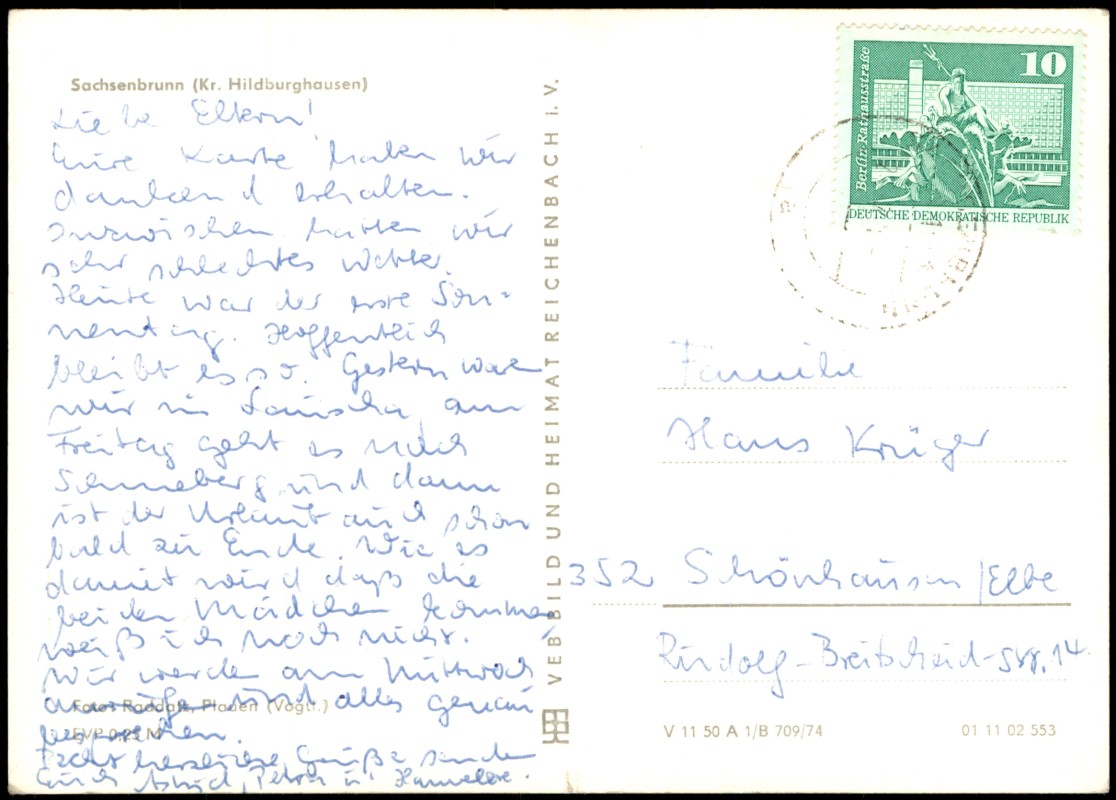 Sachsenbrunn (Kr. Hildburghausen)
Liebe Eltern!
Eure Karte haben wir
dankend erhalten.
Inzwischen hatten wir
sehr schlechtes Wetter.
Heute war der erste Son=
nentag. Hoffentlich
bleibt es so. Gestern waren
wir in Lauscha, am
Freitag geht es nach
Sonneberg, und dann
ist der Urlaub auch schon
bald zu Ende. Wie es
damit wird daß die
beiden Mädchen kommen,
weiß ich noch nicht.
Wir werden am Mittwoch
und alles genau
besprechen.
Recht herzliche Grüße senden
Euch Astrid, Petra u. Hannelore.
Foto: Raddatz, Plauen (Vogtl.)
EVP 0,25 M
VEB BILD UND HEIMAT REICHENBACH i. V.
10
Berlin: Rathausstraße
DEUTSCHE DEMOKRATISCHE REPUBLIK
Familie
Hans Krüger
352 Schönhausen/Elbe
Rudolf-Breitscheid-Str. 14
V 11 50 A 1/B 709/74
01 11 02 553